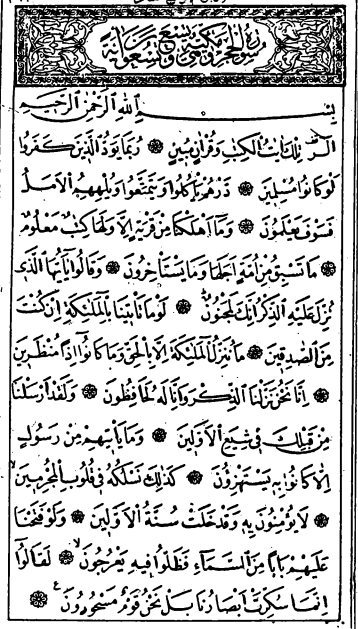 سورة الحجر مكية وهي تسع وتسعون آية
بِسْمِ اللهِ الرَّحْمٰنِ الرَّحِيمِ
الٓرٰ تِلْكَ اٰيَاتُ الْكِتَابِ وَقُرْاٰنٍ مُبِينٍ ۝ رُبَمَا يَوَدُّ الَّذِينَ كَفَرُوا
لَوْ كَانُوا مُسْلِمِينَ ۝ ذَرْهُمْ يَأْكُلُوا وَيَتَمَتَّعُوا وَيُلْهِهِمُ الْاَمَلُ
فَسَوْفَ يَعْلَمُونَ ۝ وَمَا اَهْلَكْنَا مِنْ قَرْيَةٍ اِلَّا وَلَهَا كِتَابٌ مَعْلُومٌ
۝ مَا تَسْبِقُ مِنْ اُمَّةٍ اَجَلَهَا وَمَا يَسْتَأْخِرُونَ ۝ وَقَالُوا يَا اَيُّهَا الَّذِي
نُزِّلَ عَلَيْهِ الذِّكْرُ اِنَّكَ لَمَجْنُونٌ ۝ لَوْ مَا تَأْتِينَا بِالْمَلٰٓئِكَةِ اِنْ كُنْتَ
مِنَ الصَّادِقِينَ ۝ مَا نُنَزِّلُ الْمَلٰٓئِكَةَ اِلَّا بِالْحَقِّ وَمَا كَانُوا اِذًا مُنْظَرِينَ
۝ اِنَّا نَحْنُ نَزَّلْنَا الذِّكْرَ وَاِنَّا لَهُ لَحَافِظُونَ ۝ وَلَقَدْ اَرْسَلْنَا
مِنْ قَبْلِكَ فِي شِيَعِ الْاَوَّلِينَ ۝ وَمَا يَأْتِيهِمْ مِنْ رَسُولٍ
اِلَّا كَانُوا بِهِ يَسْتَهْزِؤُنَ ۝ كَذٰلِكَ نَسْلُكُهُ فِي قُلُوبِ الْمُجْرِمِينَ
۝ لَا يُؤْمِنُونَ بِهِ وَقَدْ خَلَتْ سُنَّةُ الْاَوَّلِينَ ۝ وَلَوْ فَتَحْنَا
عَلَيْهِمْ بَابًا مِنَ السَّمَآءِ فَظَلُّوا فِيهِ يَعْرُجُونَ ۝ لَقَالُوا
اِنَّمَا سُكِّرَتْ اَبْصَارُنَا بَلْ نَحْنُ قَوْمٌ مَسْحُورُونَ ۝